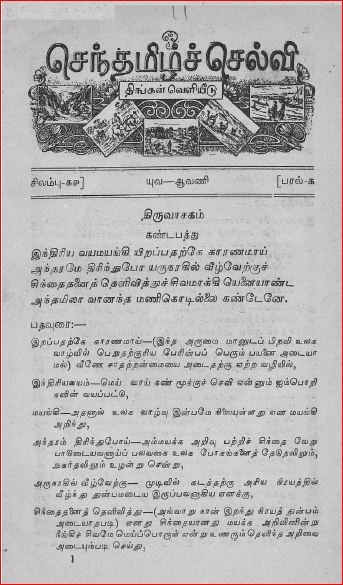 செந்தமிழ்ச்செல்வி
திங்கள் வெளியீடு
சிலம்பு-கசு] யுவ—ஆவணி [பரல்-க
திருவாசகம்
கண்டபத்து
இந்திரிய வயமயங்கி யிறப்பதற்கே காரணமாய்
அந்தரமே திரிந்துபோ யருநரகில் வீழ்வேற்குச்
சிந்தைதனைத் தெளிவித்துச் சிவமாக்கி யெனையாண்ட
அந்தமிலா வானந்த மணிகொடில்லை கண்டேனே.
பதவுரை:—
இறப்பதற்கே காரணமாய்—(இந்த அருமை மானுடப் பிறவி உலக
வாழ்வில் பெறுதற்குரிய பேரின்பப் பெரும் பயனை அடையா
மல்) வீணே சாதற்றன்மையை அடைதற்கு ஏற்ற வழியில்,
இந்திரியவயம்—மெய் வாய் கண் மூக்குச் செவி என்னும் ஐம்பொறி
களின் வயப்பட்டு,
மயங்கி—அதனால் உலக வாழ்வு இன்பமே நிலையுள்ளது என மயங்கி
அறிந்து,
அந்தரம் திரிந்துபோய்—அம்மயக்க அறிவு பற்றிச் சிந்தை வேறு
பாடுடையவனாய்ப் பலவகை உலக போகங்களைத் தேடுதலிலும்,
அகர்தலிலும் உழன்று சென்று,
அருநரகில் வீழ்வேற்கு— முடிவில் கடத்தற்கு அரிய நிரயத்தில்
வீழ்ந்து துன்பமடைய இருப்பவனாகிய எனக்கு,
சிந்தைதனைத் தெளிவித்து—(அவ்வாறு நான் இறந்து நிரயத் துன்பம்
அடையாதபடி) எனது சிந்தையானது மயக்க அறிவினின்று
நீங்கிச் சிவமே மெய்ப்பொருள் என்று உணரும் தெளிந்த அறிவை
அடையும்படி செய்து,
1